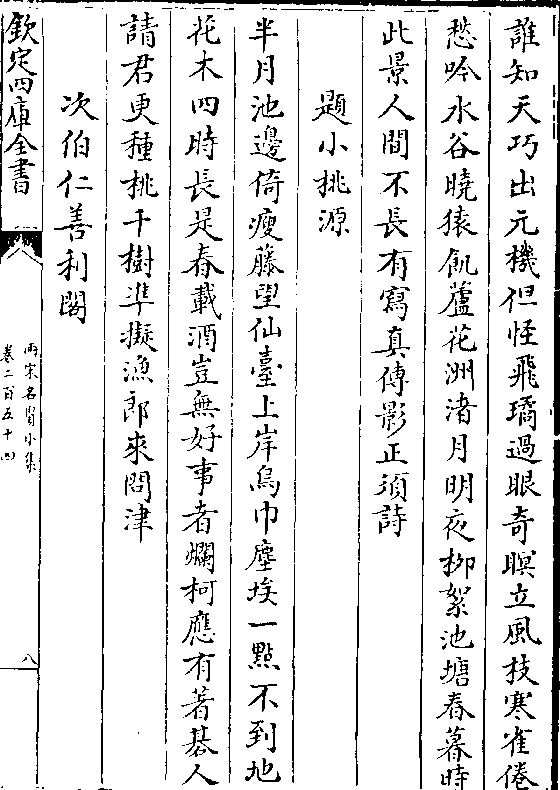 誰知天巧出元機但怪飛璚過眼奇暝立風技寒雀倦
愁吟水谷曉猿飢蘆花洲渚月明夜栁絮池塘春暮時
此景人間不長有寫真傳影正須詩
題小桃源
半月池邊倚瘦藤望仙臺上岸烏巾塵埃一點不到地
花木四時長是春載酒豈無好事者爛柯應有著棊人
請君更種桃千樹準擬漁郎來問津
次伯仁善利閣
欽定四庫全書
兩宋名賢小集
卷二百五十四
八